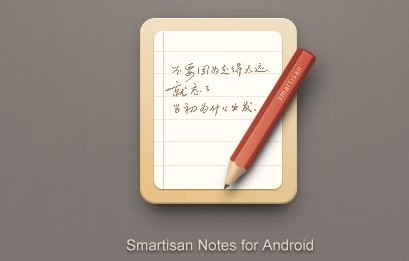 不要因为走得太远
就忘了
当初为什么出发.
smartisan
Smartisan Notes for Android